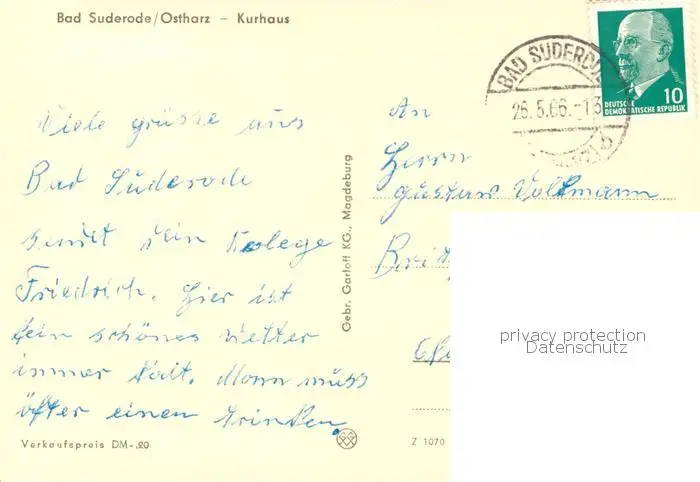 Bad Suderode/Ostharz – Kurhaus
Viele grüsse aus
Bad Suderode
sendet dein Kolege
Friedrich. Hier ist
kein schönes Wetter
immer kalt. Mann müss
öfter einen trinken.
Verkaufspreis DM -.20
Gebr. Garloff KG., Magdeburg
BAD SUDERODE
26.5.66.-13
DEUTSCHE
DEMOKRATISCHE REPUBLIK
10
An
Herrn
Gustav Volkmann
Z 1070
privacy protection
Datenschutz